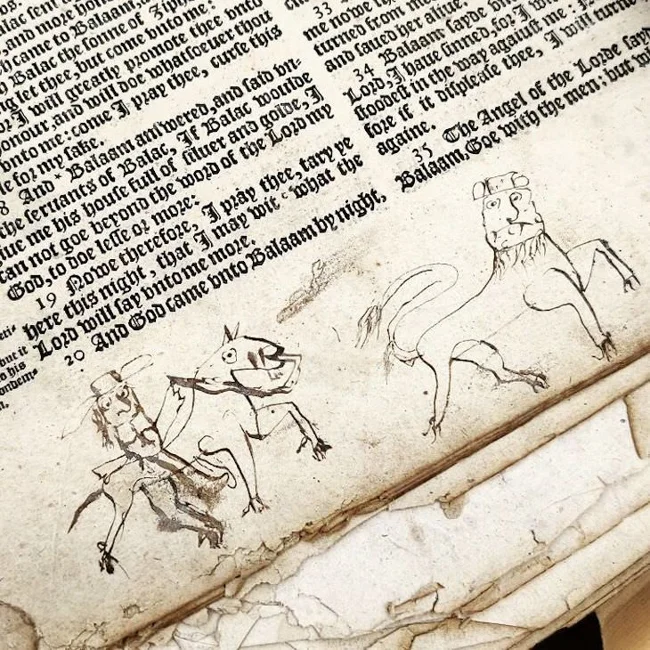 lac sent
and more
came to Balaam,
Balac the sonne of
let thee, but come vnto me:
I will greatly promote thee vnto
onour, and will doe whatsoeuer thou
vnto me: come I pray thee, curse this
le for my sake.
8 And * Balaam answered, and said vn-
the seruants of Balac, If Balac woulde
giue me his house full of siluer and golde, I
can not goe beyond the word of the Lord my
God, to doe lesse or more:
19 Nowe therefore, I pray thee, tary ye
here this night, that I may wit what the
Lord will say vnto me more.
20 And God came vnto Balaam by night,
33
me nowe
turned from
and saued her aliue.
34 Balaam sayde vn
Lord, I haue sinned, for I
stoodest in the way against me:
fore if it displease thee, I will turne
againe.
35 The Angel of the Lorde sayd
Balaam, Goe with the men: but